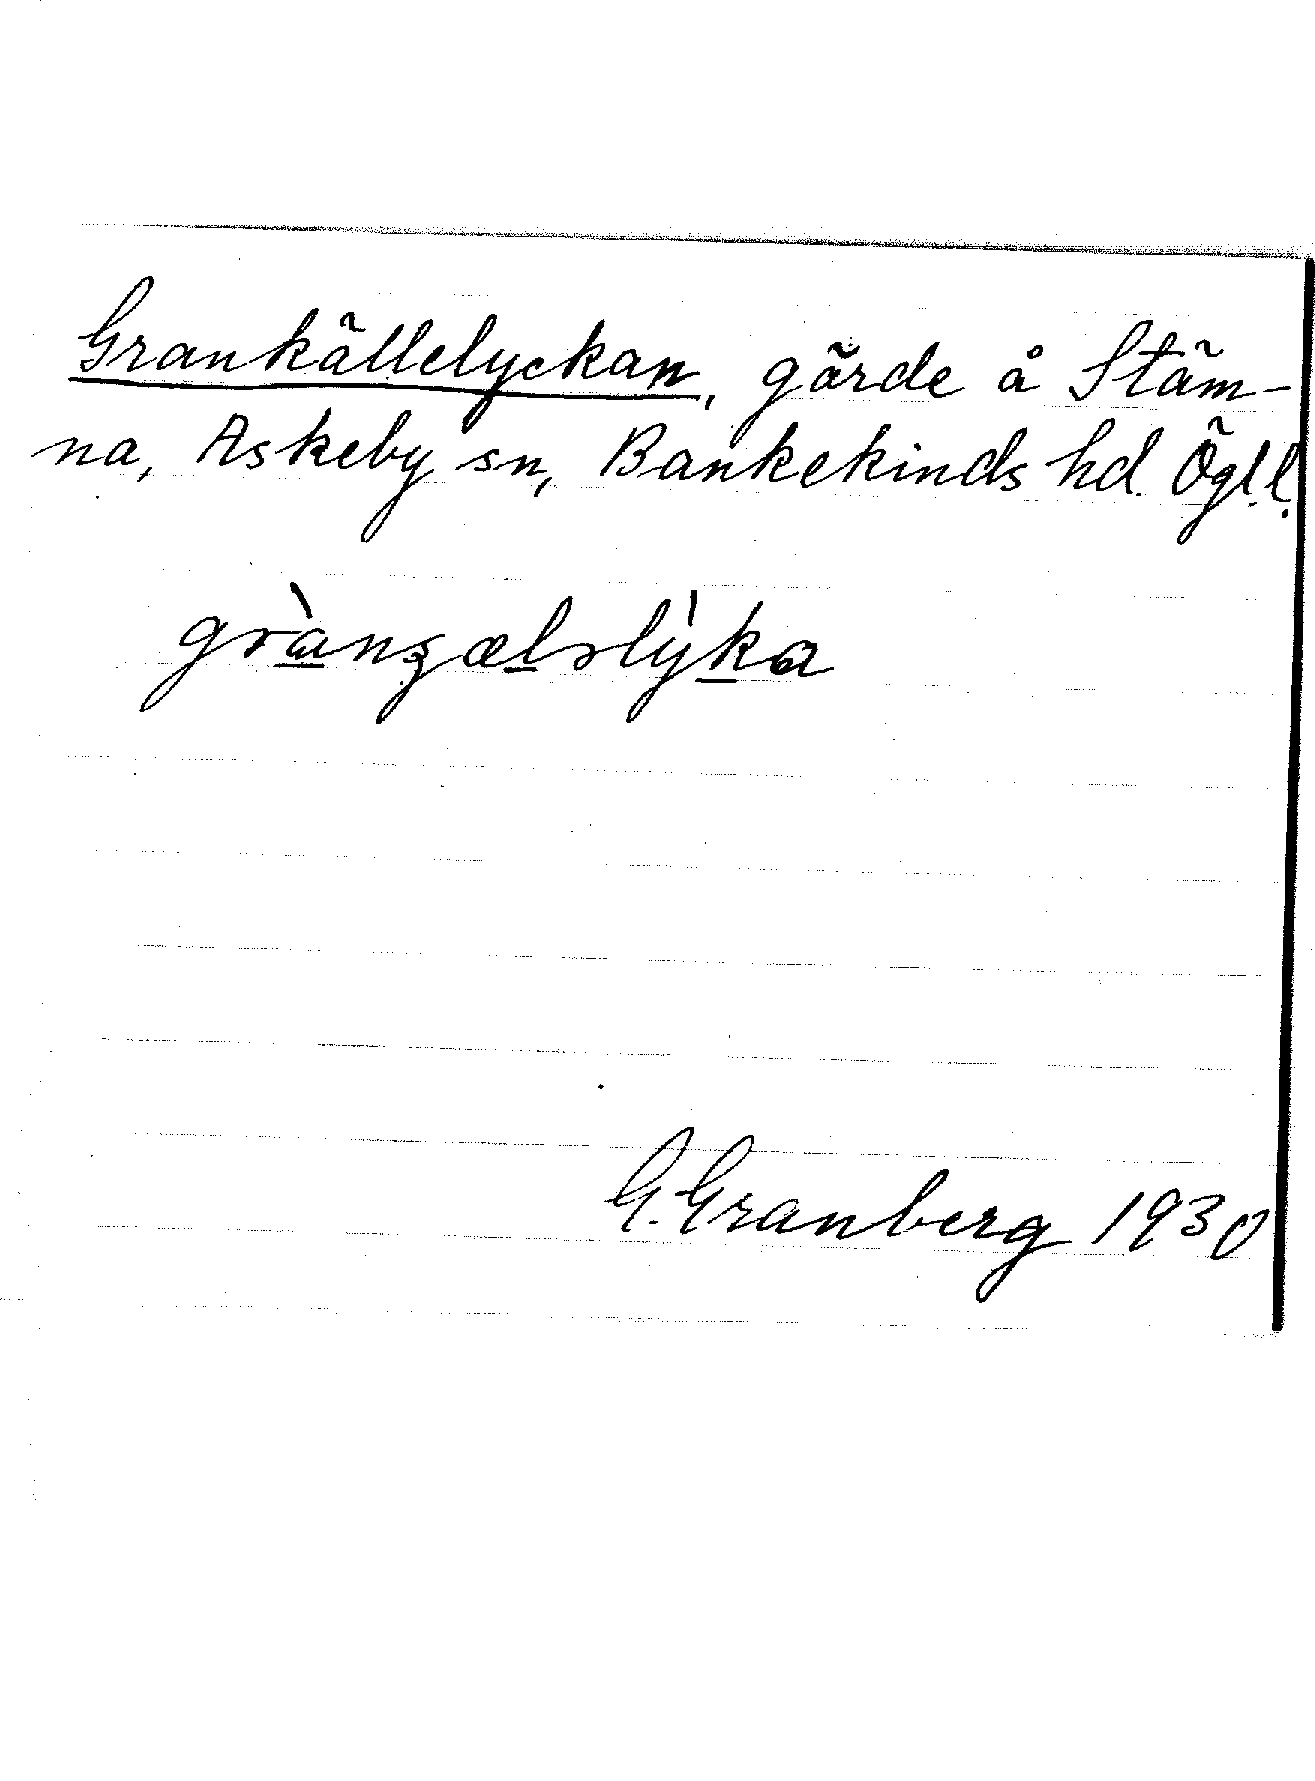 Grankällelyckan, gärde å Stäm-
na, Askeby sn, Bankekinds hd. Ögl.l.
G. Granberg 1930